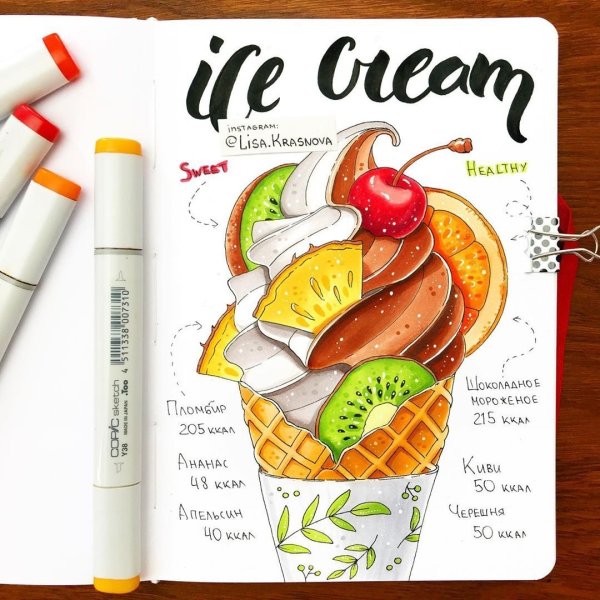 ice cream
INSTAGRAM:
@LISA.KRASNOVA
SWEET
HEALTHY
Пломбир
205 ккал
Ананас
48 ккал
Апельсин
40 ккал
Шоколадное
мороженое
215 ккал
Киви
50 ккал
Черешня
50 ккал
4 511338 007310
COPIC sketch
MADE IN JAPAN
.Too
Y38